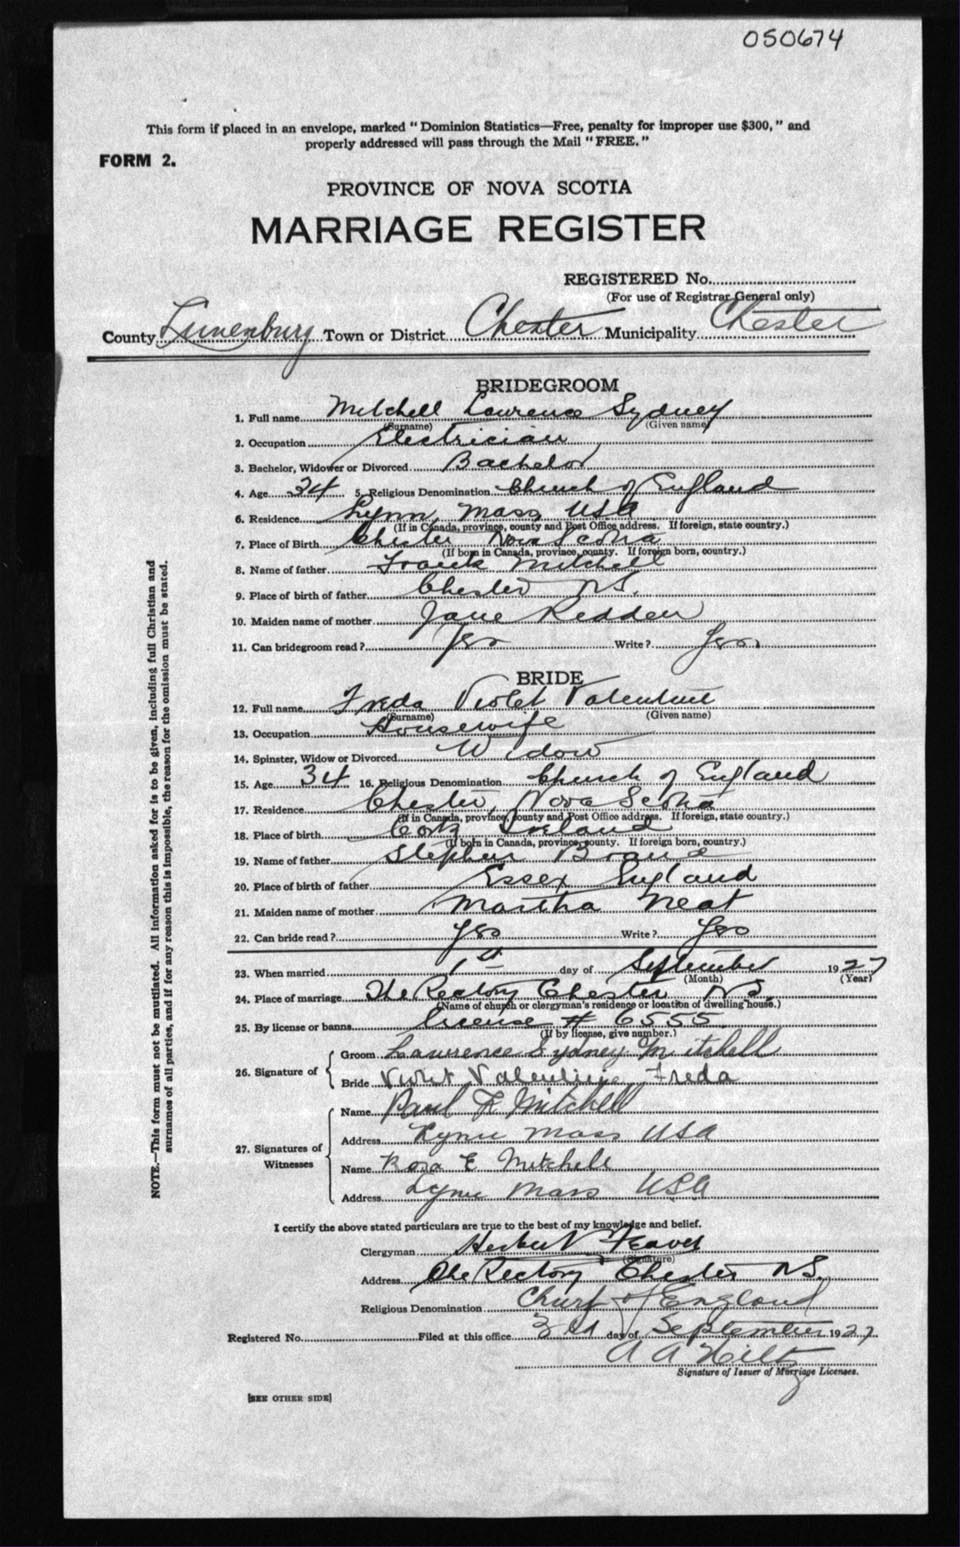 050674
This form if placed in an envelope, marked "Dominion Statistics—Free, penalty for improper use $300," and
properly addressed will pass through the Mail "FREE."
FORM 2.
PROVINCE OF NOVA SCOTIA
MARRIAGE REGISTER
REGISTERED No.
(For use of Registrar General only)
County Lunenburg Town or District Chester Municipality Chester
BRIDEGROOM
1. Full name Mitchell Laurence Sydney
(Surname) (Given name)
2. Occupation Electrician
3. Bachelor, Widower or Divorced Bachelor
4. Age 34 5. Religious Denomination Church of England
6. Residence Lynn Mass USA
(If in Canada, province, county and Post Office address. If foreign, state country.)
7. Place of Birth Chester Nova Scotia
(If born in Canada, province, county. If foreign born, country.)
8. Name of father Frank Mitchell
9. Place of birth of father Chester NS.
10. Maiden name of mother Jane Redden
11. Can bridegroom read? Yes Write? Yes
BRIDE
12. Full name Freda Violet Valentine
(Surname) (Given name)
13. Occupation Housewife
14. Spinster, Widow or Divorced Widow
15. Age 34 16. Religious Denomination Church of England
17. Residence Chester, Nova Scotia
(If in Canada, province, county and Post Office address. If foreign, state country.)
18. Place of birth Cork Ireland
(If born in Canada, province, county. If foreign born, country.)
19. Name of father Stephen
20. Place of birth of father Essex England
21. Maiden name of mother Martha Neat
22. Can bride read? Yes Write? Yes
23. When married 1st day of September 1927
(Month) (Year)
24. Place of marriage The Rectory Chester NS.
(Name of church or clergyman's residence or location of dwelling house.)
25. By license or banns license # 6555
(If by license, give number.)
26. Signature of
Groom Laurence Sydney Mitchell
Bride Violet Valentine Freda
27. Signatures of Witnesses
Name Paul F Mitchell
Address Lynn Mass USA
Name Rosa E Mitchell
Address Lynn Mass USA
I certify the above stated particulars are true to the best of my knowledge and belief.
Clergyman Herbert Feaver
(Signature)
Address The Rectory Chester NS.
Religious Denomination of England
Registered No. Filed at this office 3rd day of September 1927
A A Hiltz
Signature of Issuer of Marriage Licenses.
[SEE OTHER SIDE]
NOTE.—This form must not be mutilated. All information asked for is to be given, including full Christian and
surnames of all parties, and if for any reason this is impossible, the reason for the omission must be stated.